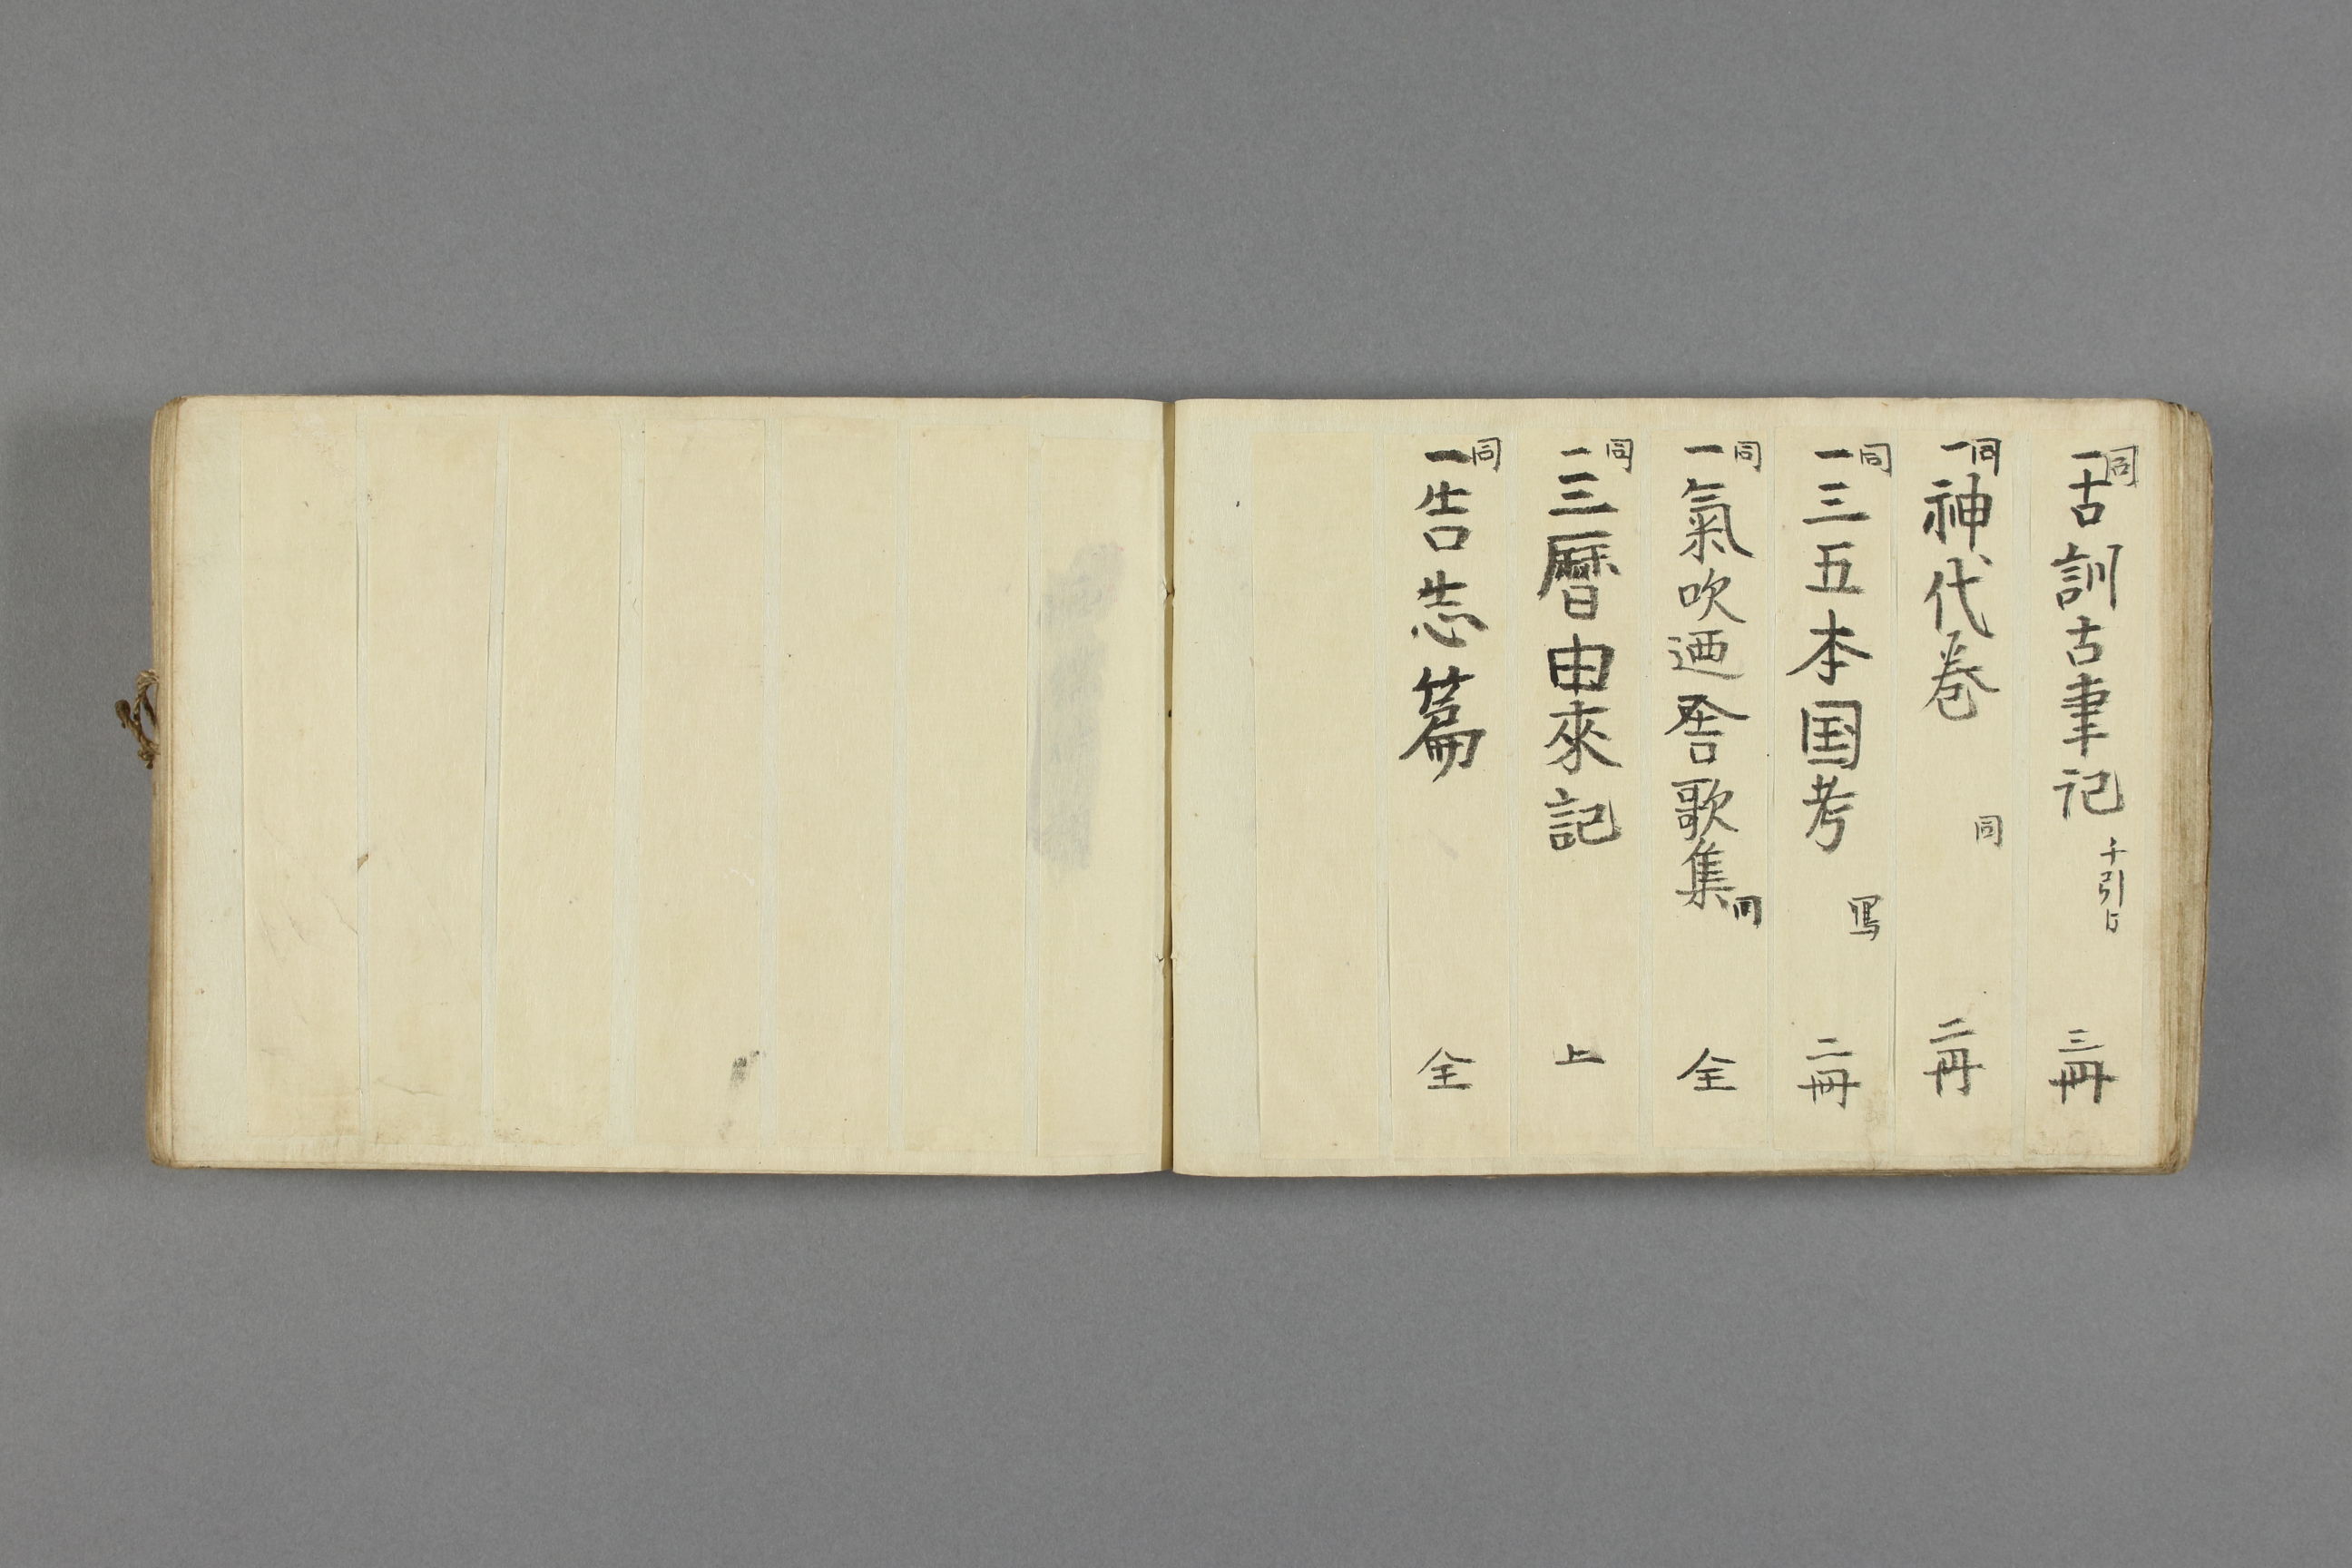 同
一古訓古事記 三冊
同
一神代巻 同 二冊
同
一三五本国考 写 二冊
同
一氣吹廼舎歌集 同 全
同
一三暦由來記 上
同
一告志篇 全